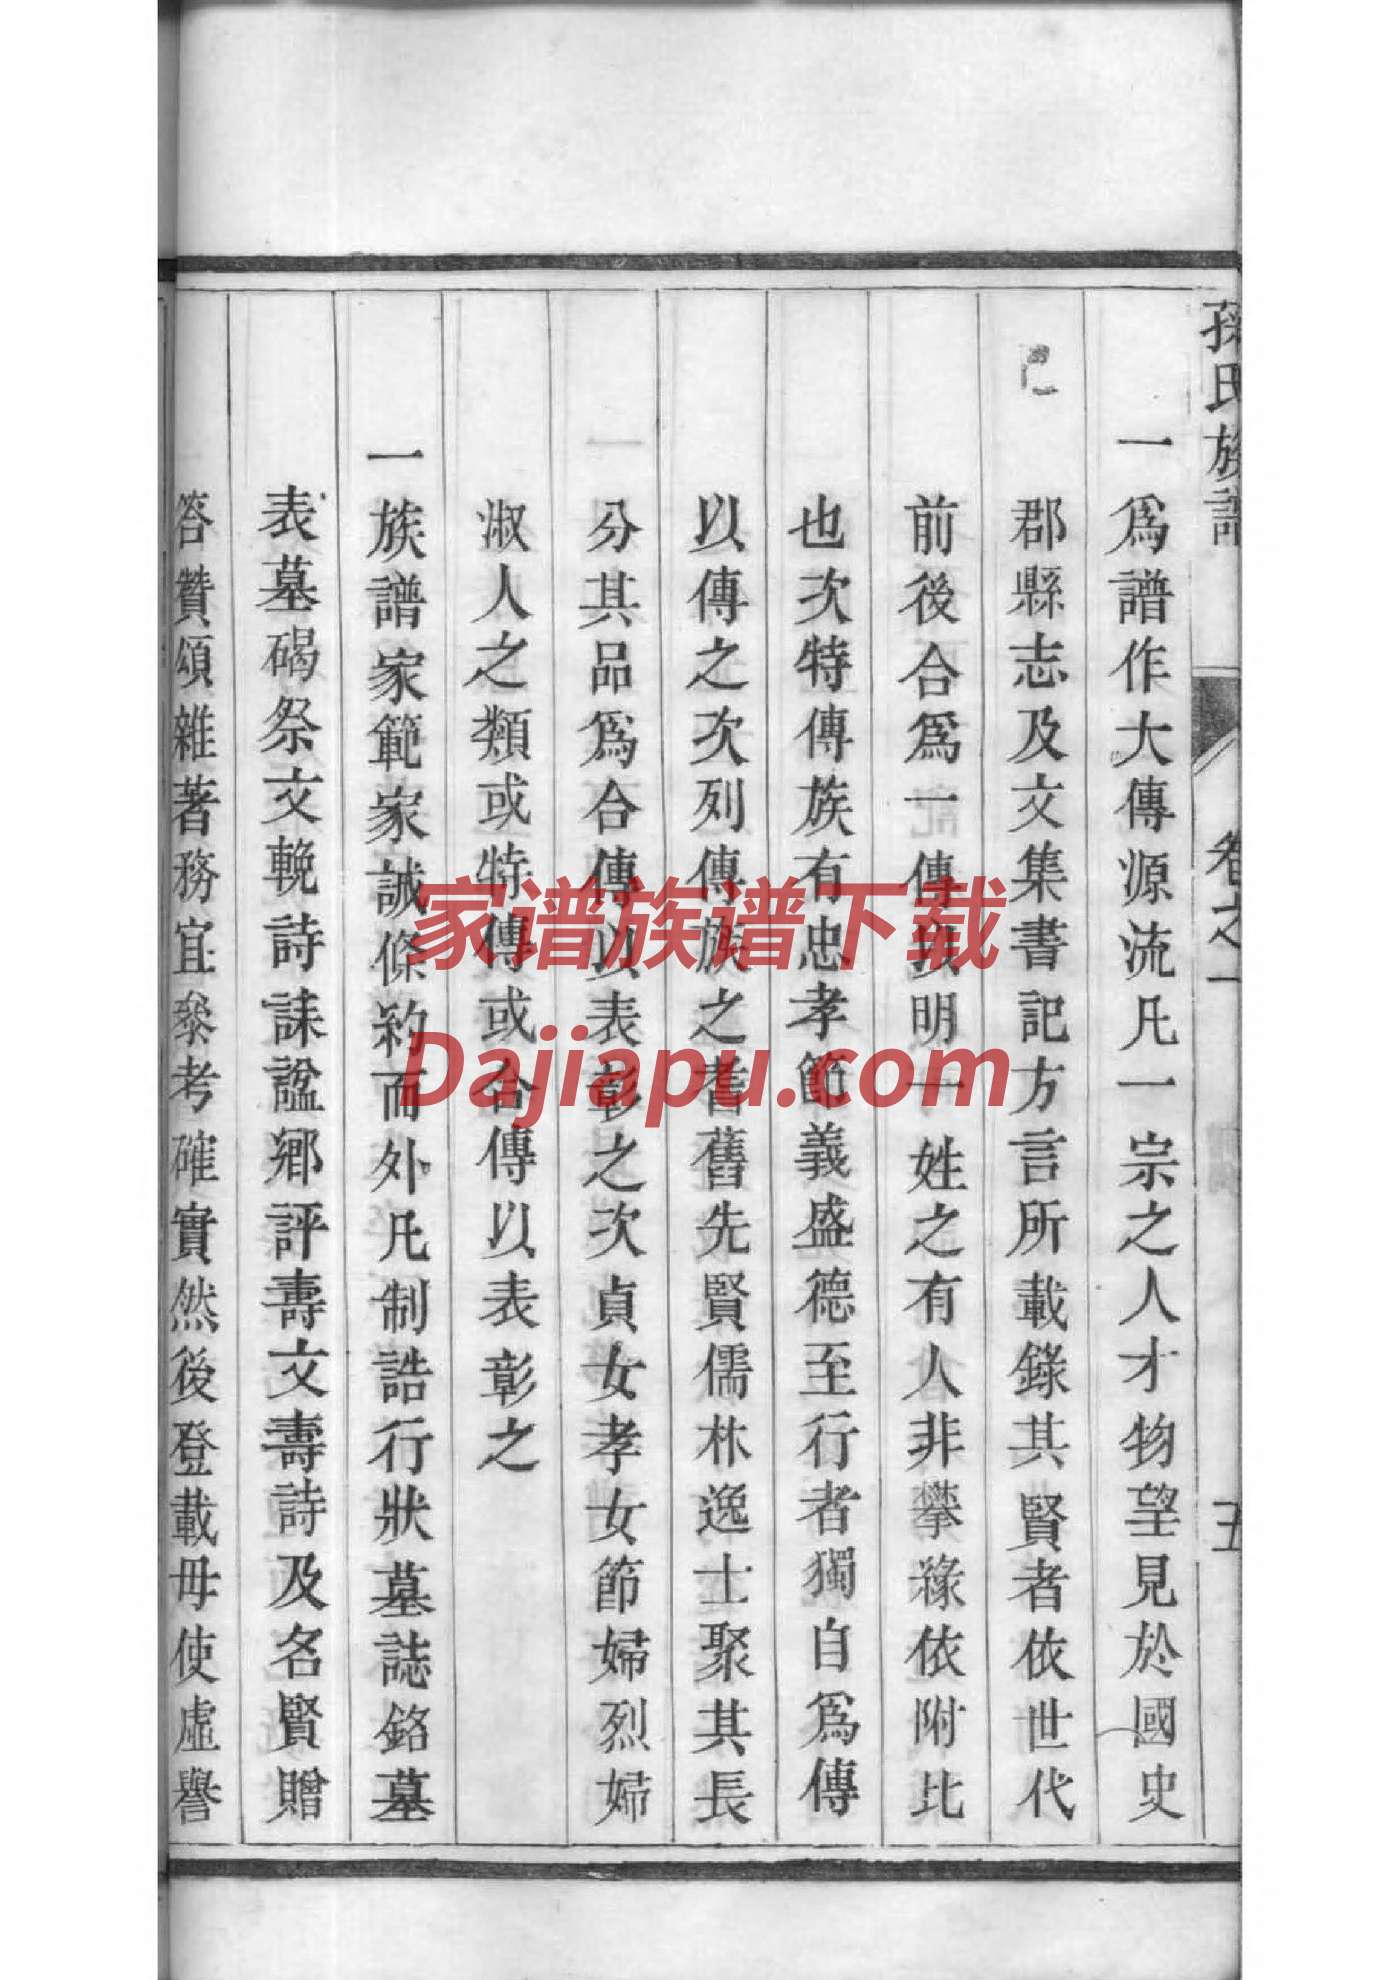 孫氏族譜 卷之一 五
一爲譜作大傳源流凡一宗之人才物望見於國史
郡縣志及文集書記方言所載錄其賢者依世代
前後合爲一傳以明一姓之有人非攀緣依附比
也次特傳族有忠孝節義盛德至行者獨自爲傳
以傳之次列傳族之耆舊先賢儒林逸士聚其長
分其品爲合傳以表彰之次貞女孝女節婦烈婦
淑人之類或特傳或合傳以表彰之
一族譜家範家誡條約而外凡制誥行狀墓誌銘墓
表墓碣祭文輓詩誄謚鄉評壽文壽詩及名賢贈
答贊頌雜著務宜參考確實然後登載毋使虛譽
家谱族谱下载
Dajiapu.com